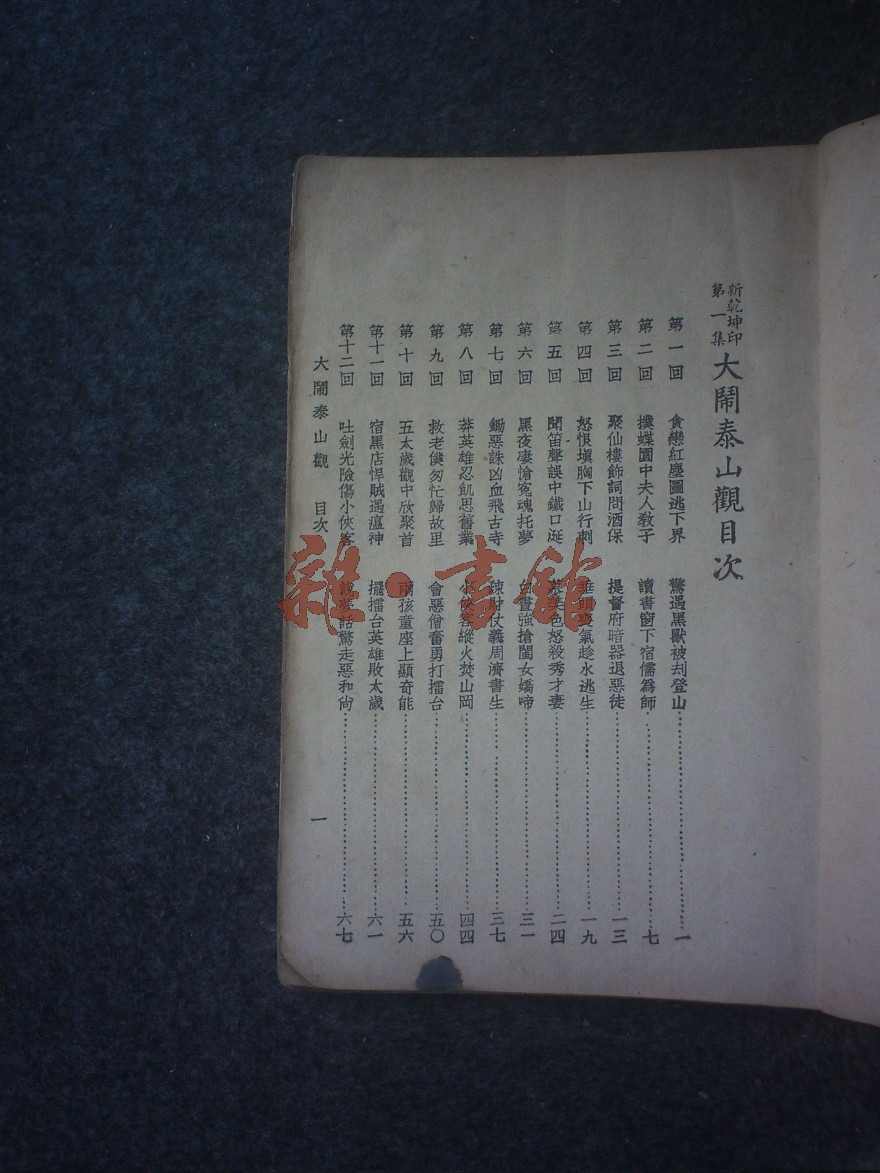 新乾坤印
第一集
大鬧泰山觀目次
第一回 貪戀紅塵圖逃下界 驚遇黑獸被刦登山 一
第二回 撲蝶園中夫人教子 讀書窗下宿儒爲師 七
第三回 聚仙樓飾詞問酒保 提督府暗器退惡徒 一三
第四回 怒恨塡胸下山行刺 垂頭喪氣趁水逃生 一九
第五回 聞笛聲誤中鐵口涎 慕美色怒殺秀才妻 二四
第六回 黑夜凄愴寃魂托夢 白晝強搶閨女嬌啼 三一
第七回 鋤惡誅凶血飛古寺 疎財仗義周濟書生 三七
第八回 莽英雄忍飢思舊業 小俠客縱火焚山岡 四四
第九回 救老僕匆忙歸故里 會惡僧奮勇打擂台 五〇
第十回 五太歲觀中欣聚首 兩孩童座上顯奇能 五六
第十一回 宿黑店悍賊遇瘟神 擺擂台英雄敗太歲 六一
第十二回 吐劍光險傷小俠客 說夢話驚走惡和尙 六七
大鬧泰山觀 目次 一
雜·書館